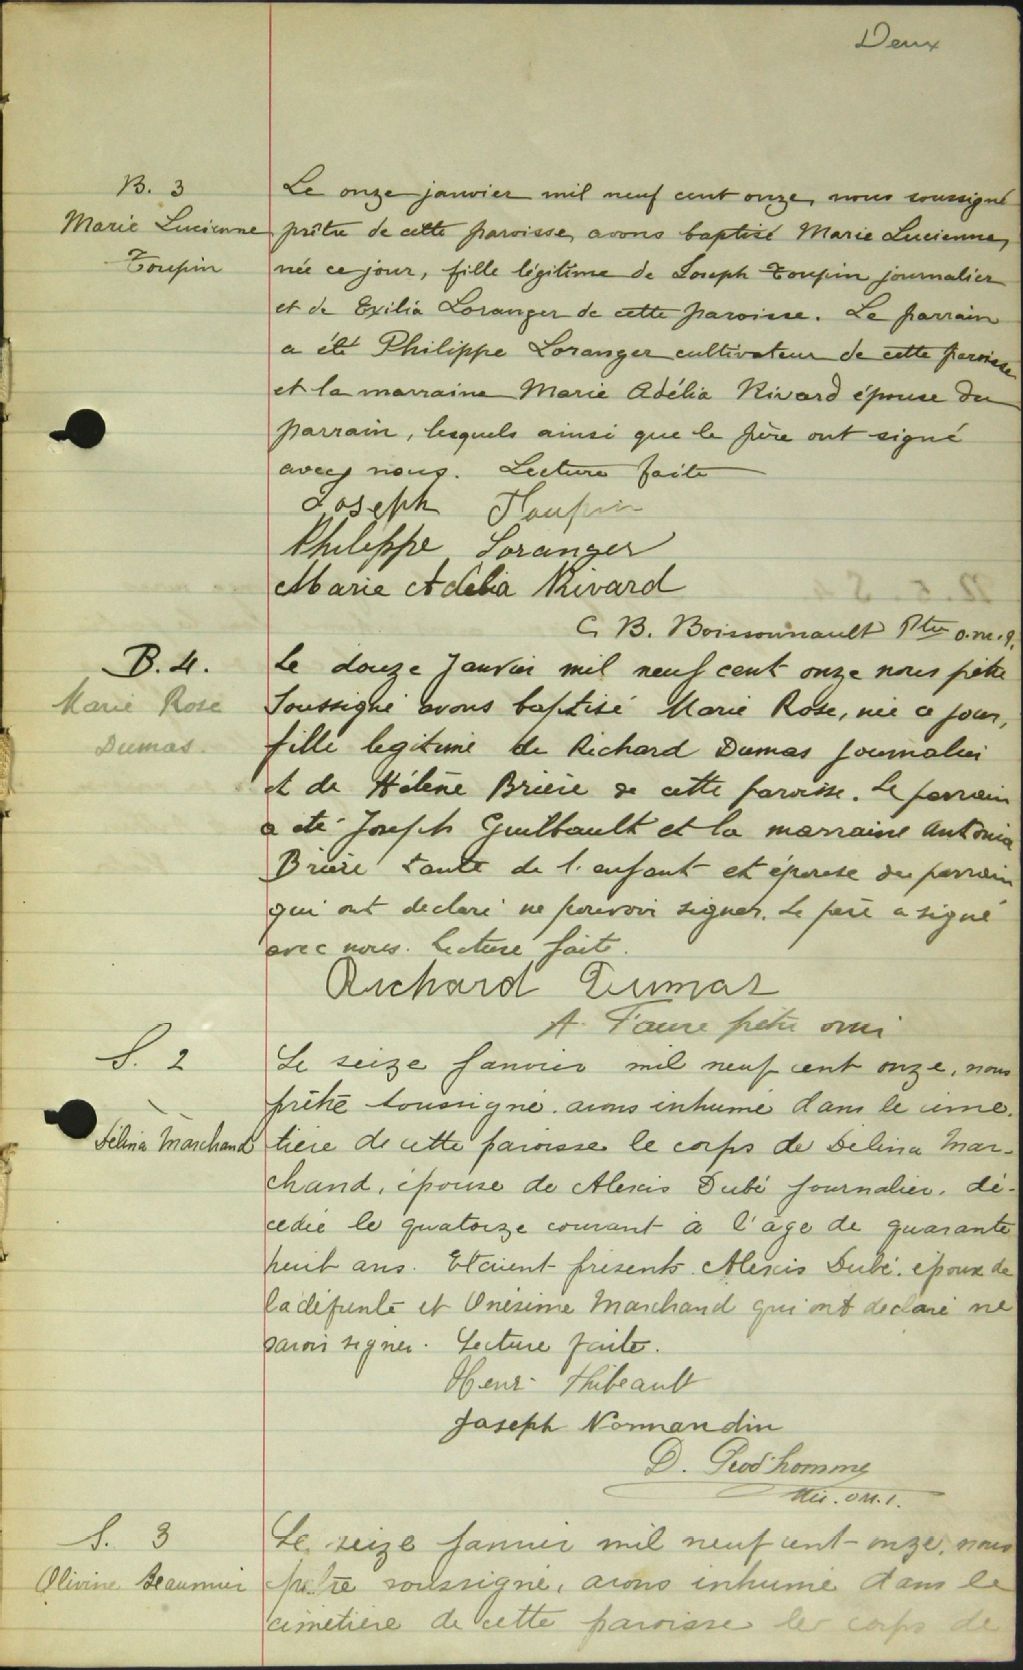 Deux
B. 3
Marie Lucienne
Toupin
Le onze janvier mil neuf cent onze, nous soussigné
prêtre de cette paroisse, avons baptisé Marie Lucienne,
née ce jour, fille légitime de Joseph Toupin journalier
et de Exilia Loranger de cette paroisse. Le parrain
a été Philippe Loranger cultivateur de cette paroisse
et la marraine Marie Adélia Rivard épouse du
parrain, lesquels ainsi que le père ont signé
avec nous. Lecture faite
Joseph Toupin
Philippe Loranger
Marie Adélia Rivard
C. B. Boissonnault Ptre o.m.i.
B. 4.
Marie Rose
Dumas.
Le douze Janvier mil neuf cent onze nous prêtre
Soussigné avons baptisé Marie Rose, née ce jour,
fille legitime de Richard Dumas journalier
et de Hélène Brière de cette paroisse. Le parrain
a été Joseph Guilbault et la marraine Antonia
Brière tante de l'enfant et épouse du parrain
qui ont declaré ne pouvoir signer. Le père a signé
avec nous. Lecture faite.
Richard Dumas
A. Faure prêtre omi
S. 2
Délina Marchand
Le seize Janvier mil neuf cent onze, nous
prêtre soussigné, avons inhumé dans le cime-
tière de cette paroisse le corps de Délina Mar-
chand, épouse de Alexis Dubé journalier, dé-
cédée le quatorze courant à l'âge de quarante
huit ans. Etaient présents Alexis Dubé, époux de
la défunte et Onésime Marchand qui ont declaré ne
savoir signer. Lecture faite.
Henri Thibeault
Joseph Normandin
D. Prod'homme
Mis. O.M.I.
S. 3
Olivine Beaumier
Le seize Janvier mil neuf cent-onze, nous
prêtre soussigné, avons inhumé dans le
cimetière de cette paroisse le corps de